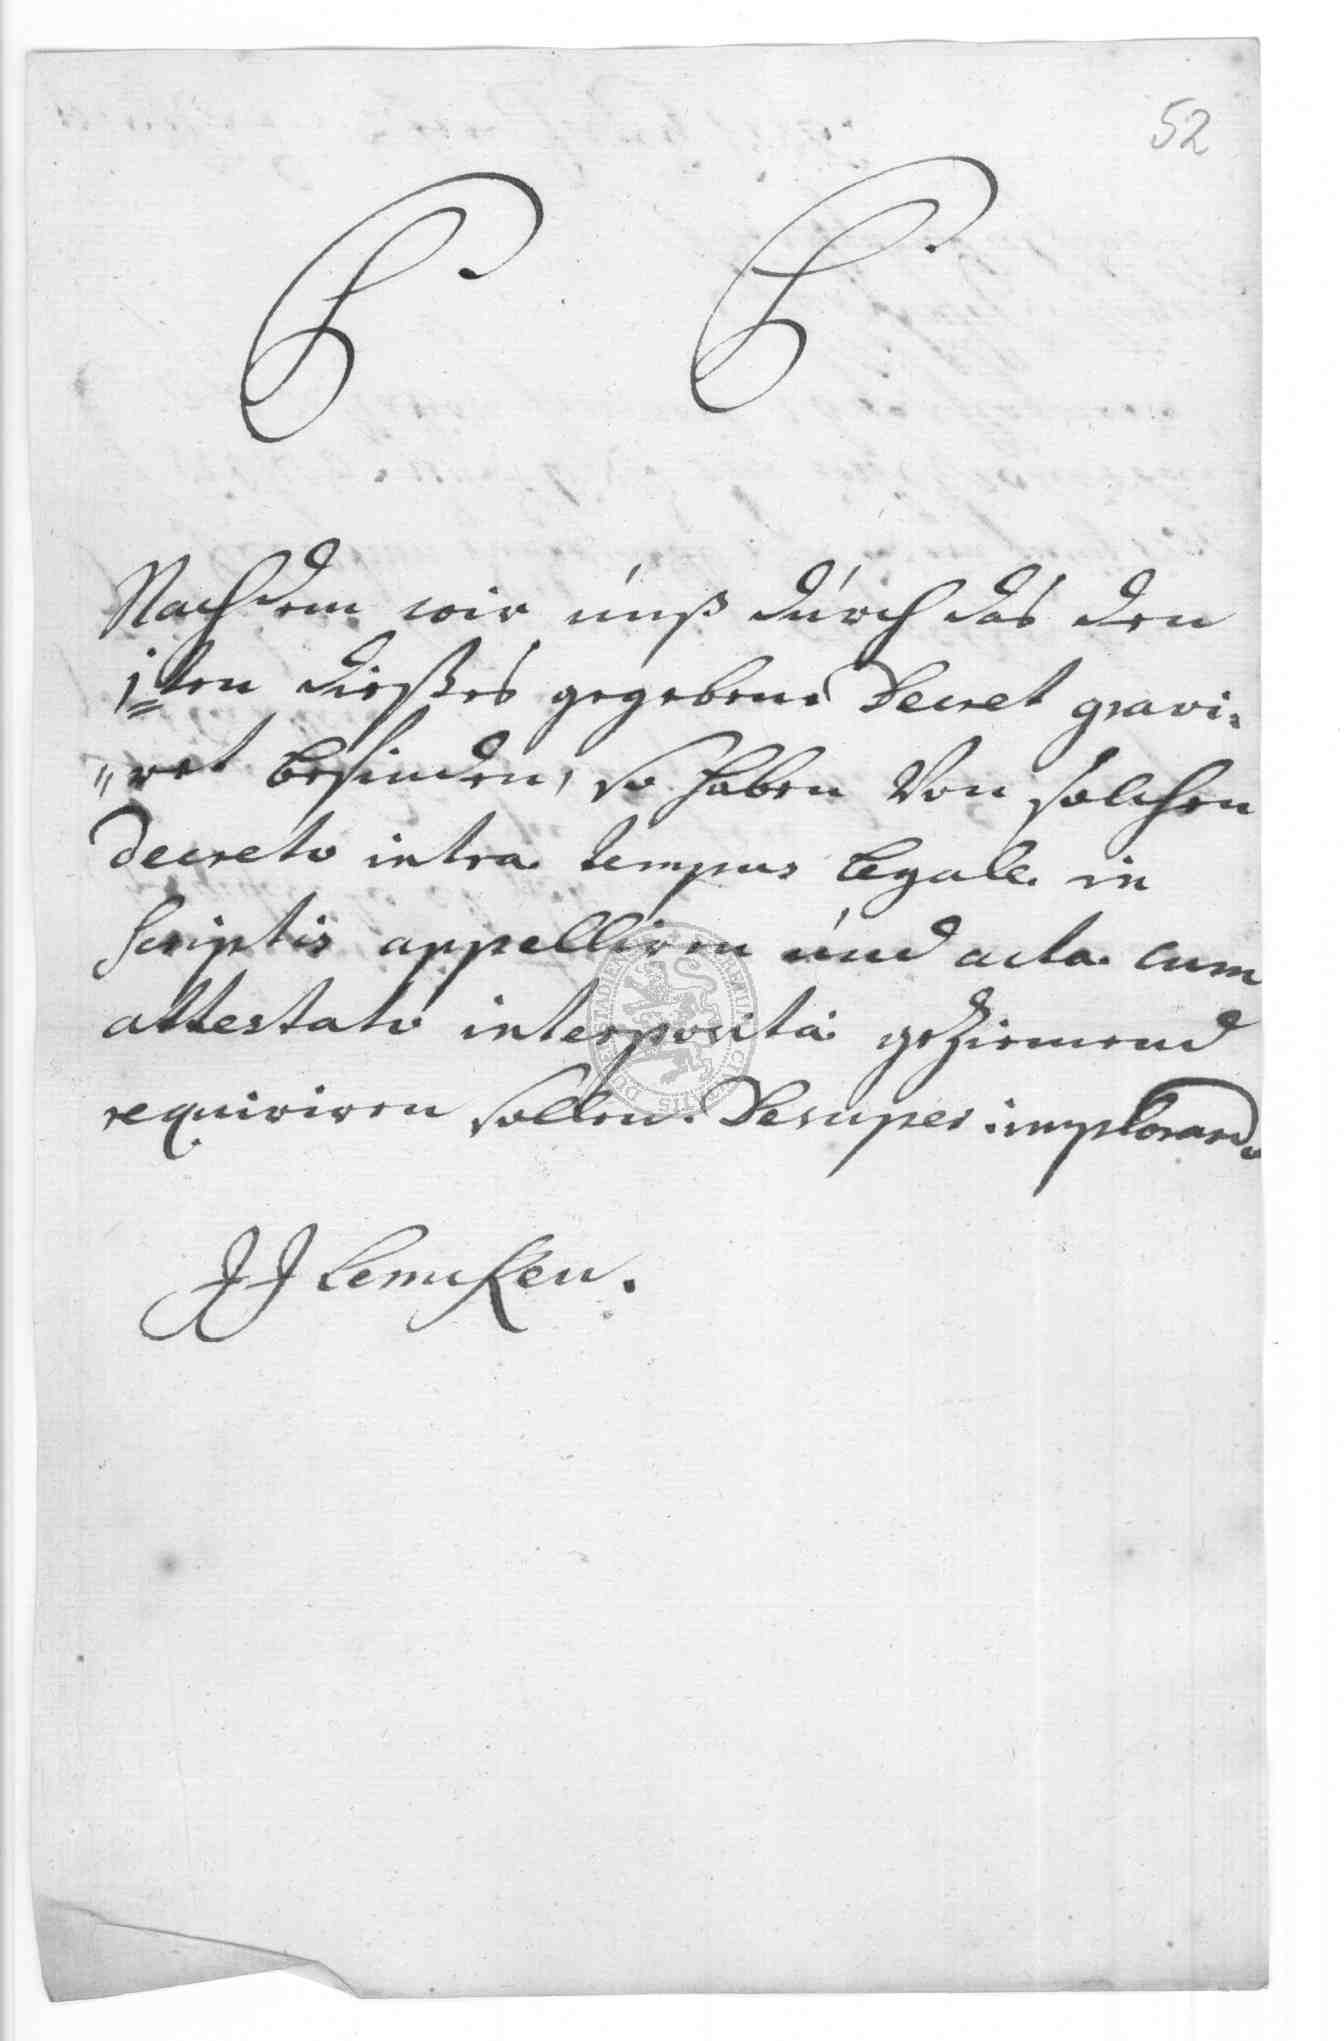 52
P P
Nachdem wir unß durch das den
1ten dießes gegebene Decret gravi=
"ret befinden, so haben Von solchen
decreto intra tempus legale in
scriptis appelliren und acta cum
attestato interposita geziemend
requiriren sollen. Desuper implorando
JJ Lemcken.